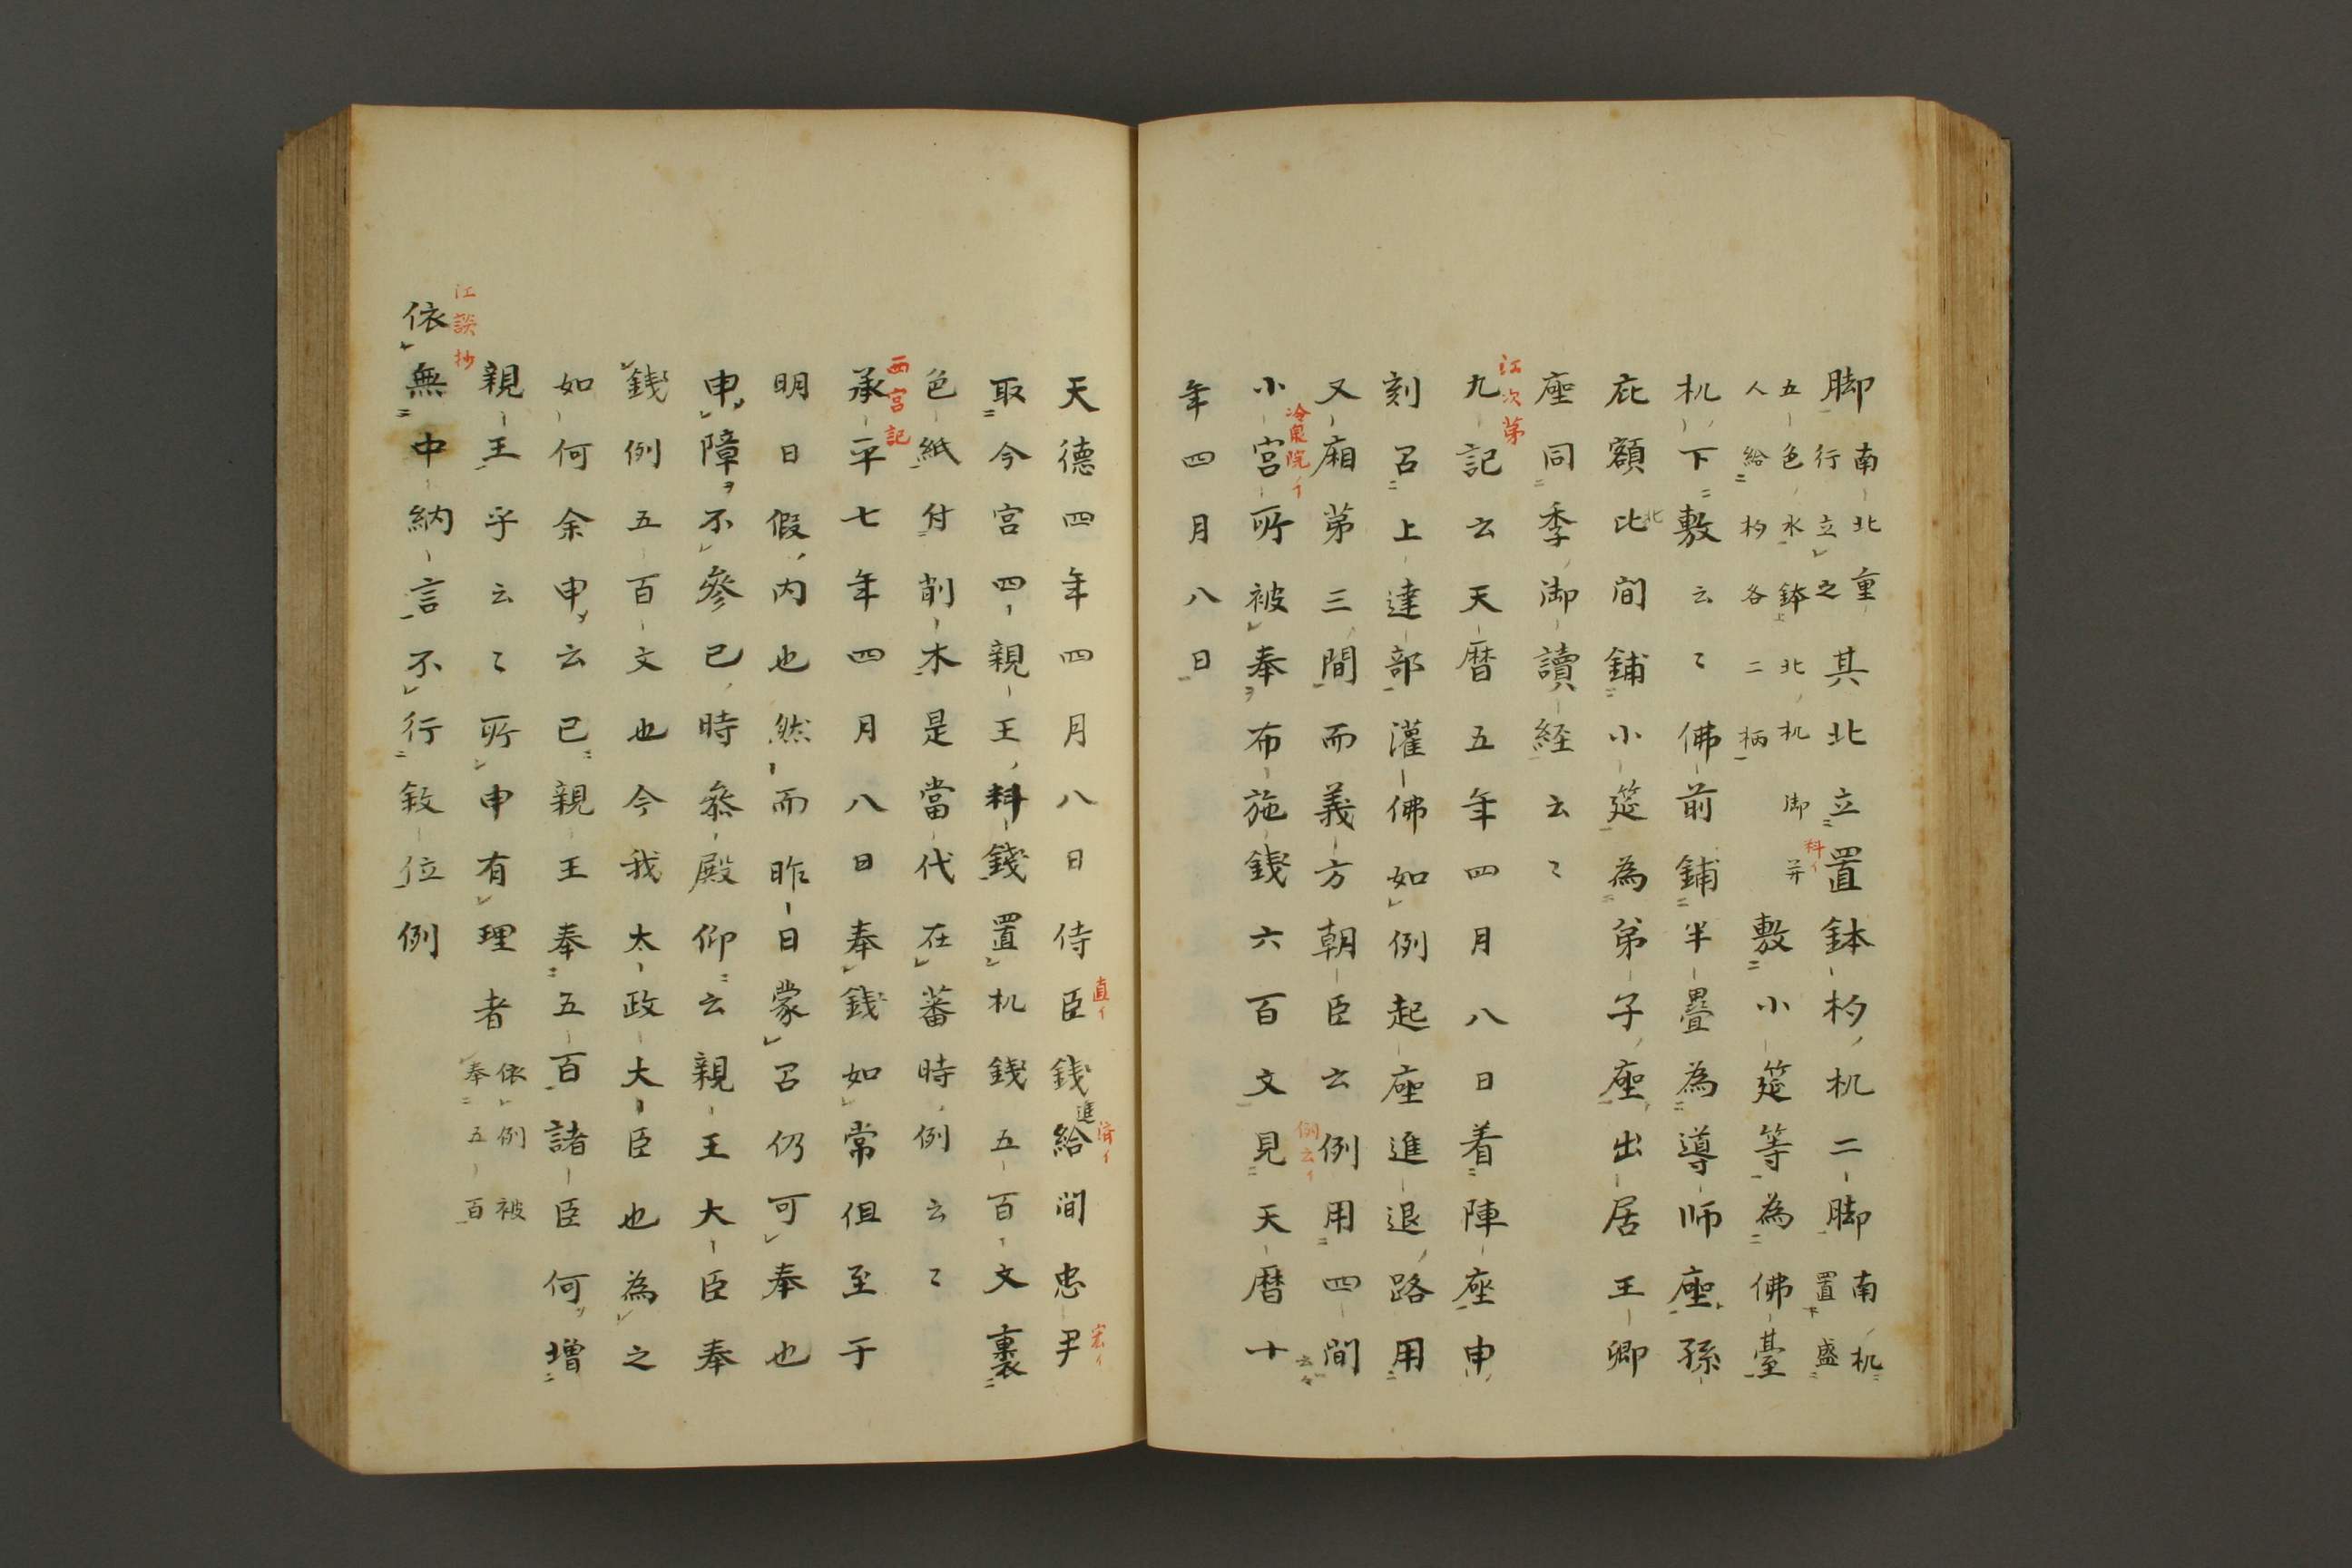 脚南北重行立之其北立置鉢杓机二脚南机置盛
五色水鉢北机御料イ并人給杓各二柄敷小筵等為佛臺
机下敷云々佛前鋪半疊為導師座孫
庇額比北間鋪小筵為弟子座出居王卿
座同季御讀経云々
江次第
九記云天暦五年四月八日着陣座申
刻召上達部灌佛如例起座進退路用
又廂第三間而義方朝臣云例用四間云々
冷泉院イ
例云イ
小宮所被奉布施錢六百文見天暦十
年四月八日
天德四年四月八日侍臣錢進給間忠尹
直イ
済イ
宏イ
取今宮四親王料錢置机錢五百文裹
色紙付削木是當代在蕃時例云々
西宮記
承平七年四月八日奉錢如常但至于
明日假内也然而昨日蒙召仍可奉也
申障不參已時參殿仰云親王大臣奉
錢例五百文也今我太政大臣也為之
如何余申云已親王奉五百諸臣何増
親王乎云々所申有理者依例被奉五百
江談抄
依無中納言不行敍位例